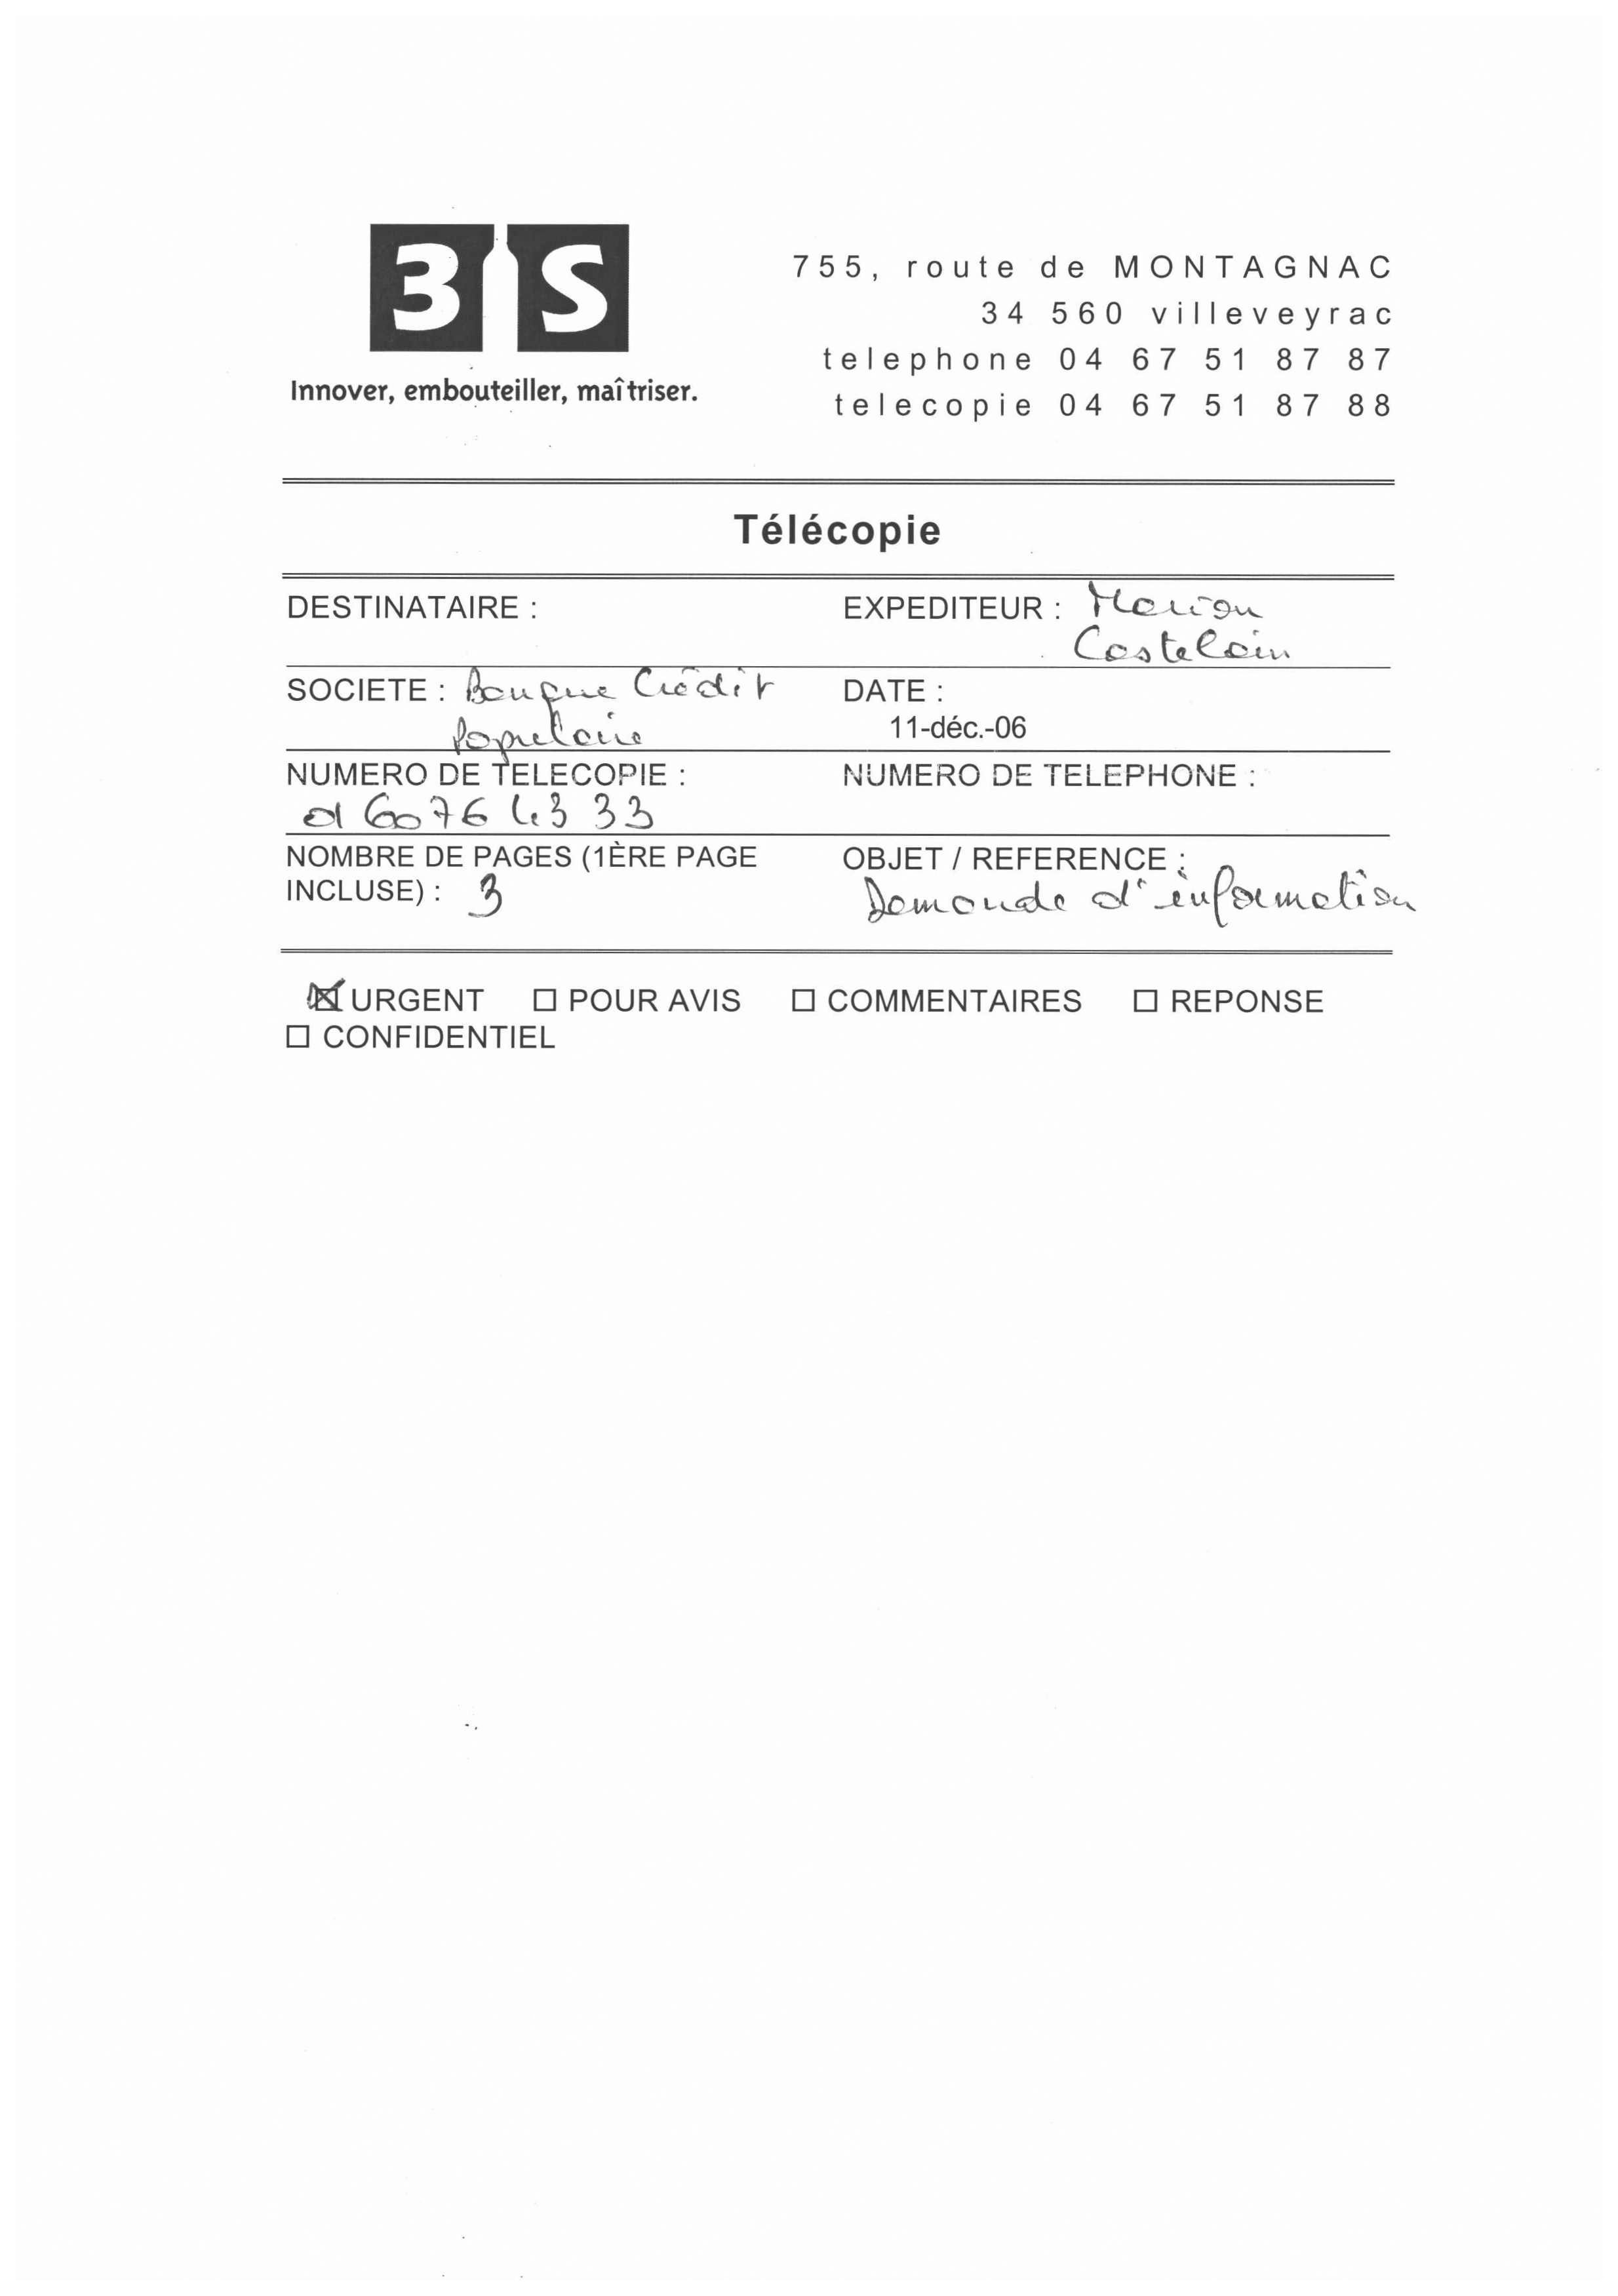 3 S
Innover, embouteiller, maîtriser.
755, route de MONTAGNAC
34 560 villeveyrac
telephone 04 67 51 87 87
telecopie 04 67 51 87 88
Télécopie
DESTINATAIRE :
EXPEDITEUR : Marion
Castelain
SOCIETE : Banque Crédit
Populaire
DATE :
11-déc.-06
NUMERO DE TELECOPIE :
01 60 76 43 33
NUMERO DE TELEPHONE :
NOMBRE DE PAGES (1ÈRE PAGE
INCLUSE) : 3
OBJET / REFERENCE :
Demande d'information
☒ URGENT ☐ POUR AVIS ☐ COMMENTAIRES ☐ REPONSE
☐ CONFIDENTIEL